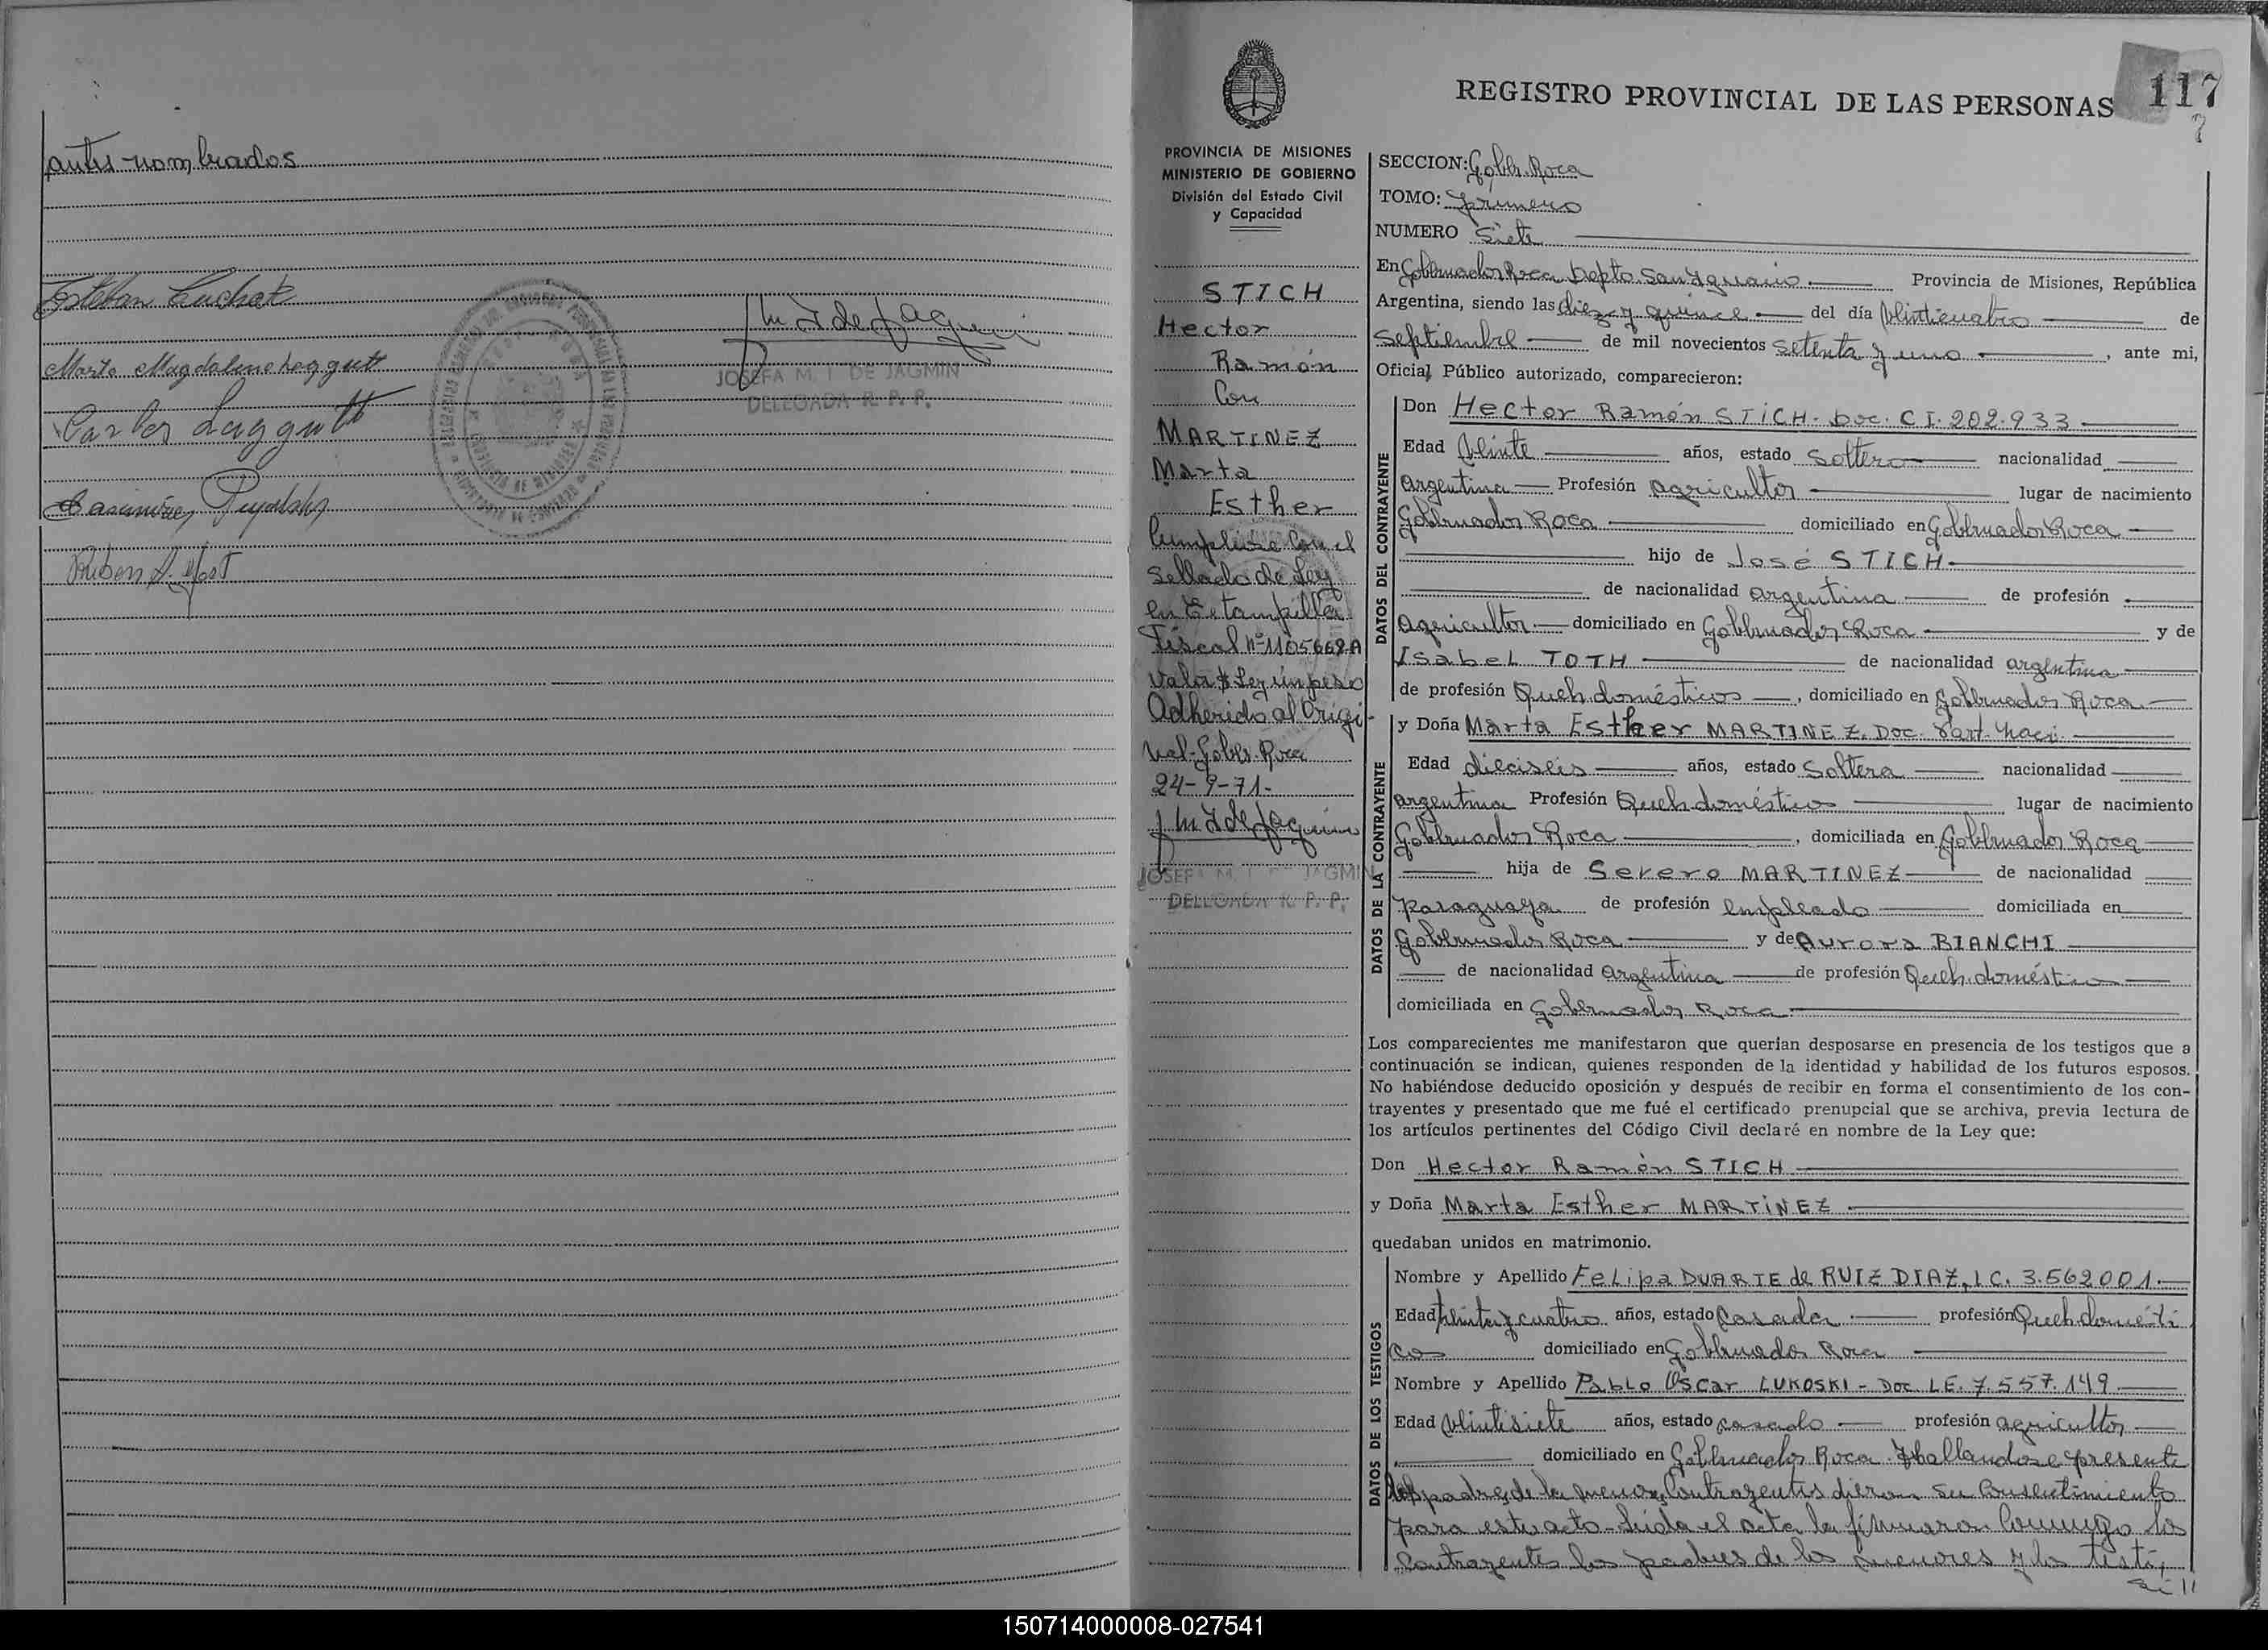 antes nombrados
Esteban Luchak
Marta Magdalena Laggutt
Carlos Laggutt
Casimiro
Ruben A.
JOSEFA M. I. DE JAGMIN
DELEGADA R. P. P.
REGISTRO PROVINCIAL DE LAS PERSONAS
117
7
PROVINCIA DE MISIONES
MINISTERIO DE GOBIERNO
División del Estado Civil
y Capacidad
STICH
Hector
Ramón
Con
MARTINEZ
Marta
Esther
Cumplióse con el
Sellado de Ley
en Estampilla
Fiscal Nº 1105669A
Valor $ Ley un peso
Adherido al Origi-
nal-Gobr. Roca
24-9-71.
JOSEFA M. I. DE JAGMIN
DELEGADA R. P. P.
SECCION: Gobr. Roca
TOMO: Primero
NUMERO Siete
En Gobernador Roca Depto San Ignacio Provincia de Misiones, República
Argentina, siendo las diez y quince del día Veinticuatro de
Septiembre de mil novecientos setenta y uno, ante mi,
Oficial Público autorizado, comparecieron:
DATOS DEL CONTRAYENTE
Don Hector Ramón STICH. Doc. C I. 202.933
Edad Veinte años, estado Soltero nacionalidad
Argentina Profesión Agricultor lugar de nacimiento
Gobernador Roca domiciliado en Gobernador Roca
hijo de José STICH
de nacionalidad argentina de profesión
Agricultor domiciliado en Gobernador Roca y de
Isabel TOTH de nacionalidad argentina
de profesión Queh. domésticos, domiciliado en Gobernador Roca
DATOS DE LA CONTRAYENTE
y Doña Marta Esther MARTINEZ. Doc. Part. Naci.
Edad dieciseis años, estado Soltera nacionalidad
argentina Profesión Queh. doméstico lugar de nacimiento
Gobernador Roca, domiciliada en Gobernador Roca
hija de Severo MARTINEZ de nacionalidad
Paraguaya de profesión empleado domiciliada en
Gobernador Roca y de Aurora BIANCHI
de nacionalidad Argentina de profesión Queh. doméstico
domiciliada en Gobernador Roca
Los comparecientes me manifestaron que querian desposarse en presencia de los testigos que a
continuación se indican, quienes responden de la identidad y habilidad de los futuros esposos.
No habiéndose deducido oposición y después de recibir en forma el consentimiento de los con-
trayentes y presentado que me fué el certificado prenupcial que se archiva, previa lectura de
los artículos pertinentes del Código Civil declaré en nombre de la Ley que:
Don Hector Ramón STICH
y Doña Marta Esther MARTINEZ
quedaban unidos en matrimonio.
DATOS DE LOS TESTIGOS
Nombre y Apellido Felipa DUARTE de RUIZ DIAZ, L C. 3.562001.
Edad treinta y cuatro años, estado Casada profesión Queh. domésti
cos domiciliado en Gobernador Roca
Nombre y Apellido Pablo Oscar LUKOSKI - Doc. LE. 7.557.149
Edad Veintisiete años, estado casado profesión agricultor
domiciliado en Gobernador Roca. Hallandose presente
los padres de los menores Contrayentes dieron su Consentimiento
para este acto - Leida el acta la firmaron Conmigo los
Contrayentes los padres de los menores y los testi,